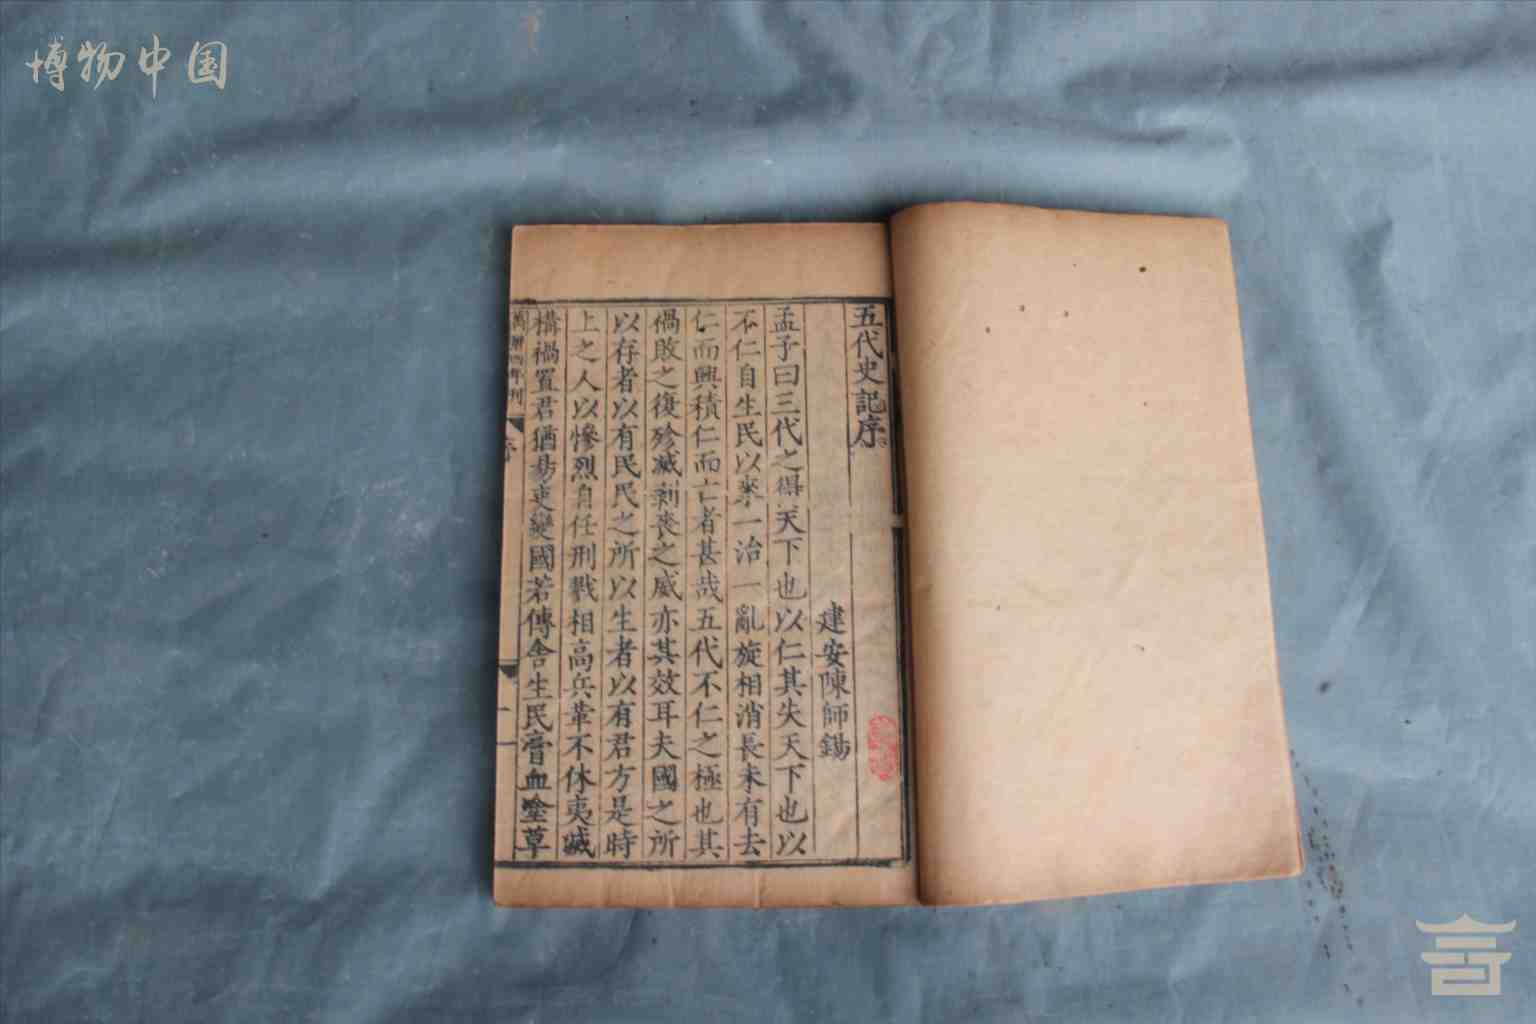 博物中国
五代史記序
建安陳師錫
孟子曰三代之得天下也以仁其失天下也以
不仁自生民以來一治一亂旋相消長未有去
仁而興積仁而亡者甚哉五代不仁之極也其
禍敗之復殄滅剥喪之威亦其效耳夫國之所
以存者以有民民之所以生者以有君方是時
上之人以慘烈自任刑戮相高兵革不休夷滅
構禍置君猶易吏變國若傳舍生民膏血塗草
萬曆四年刊